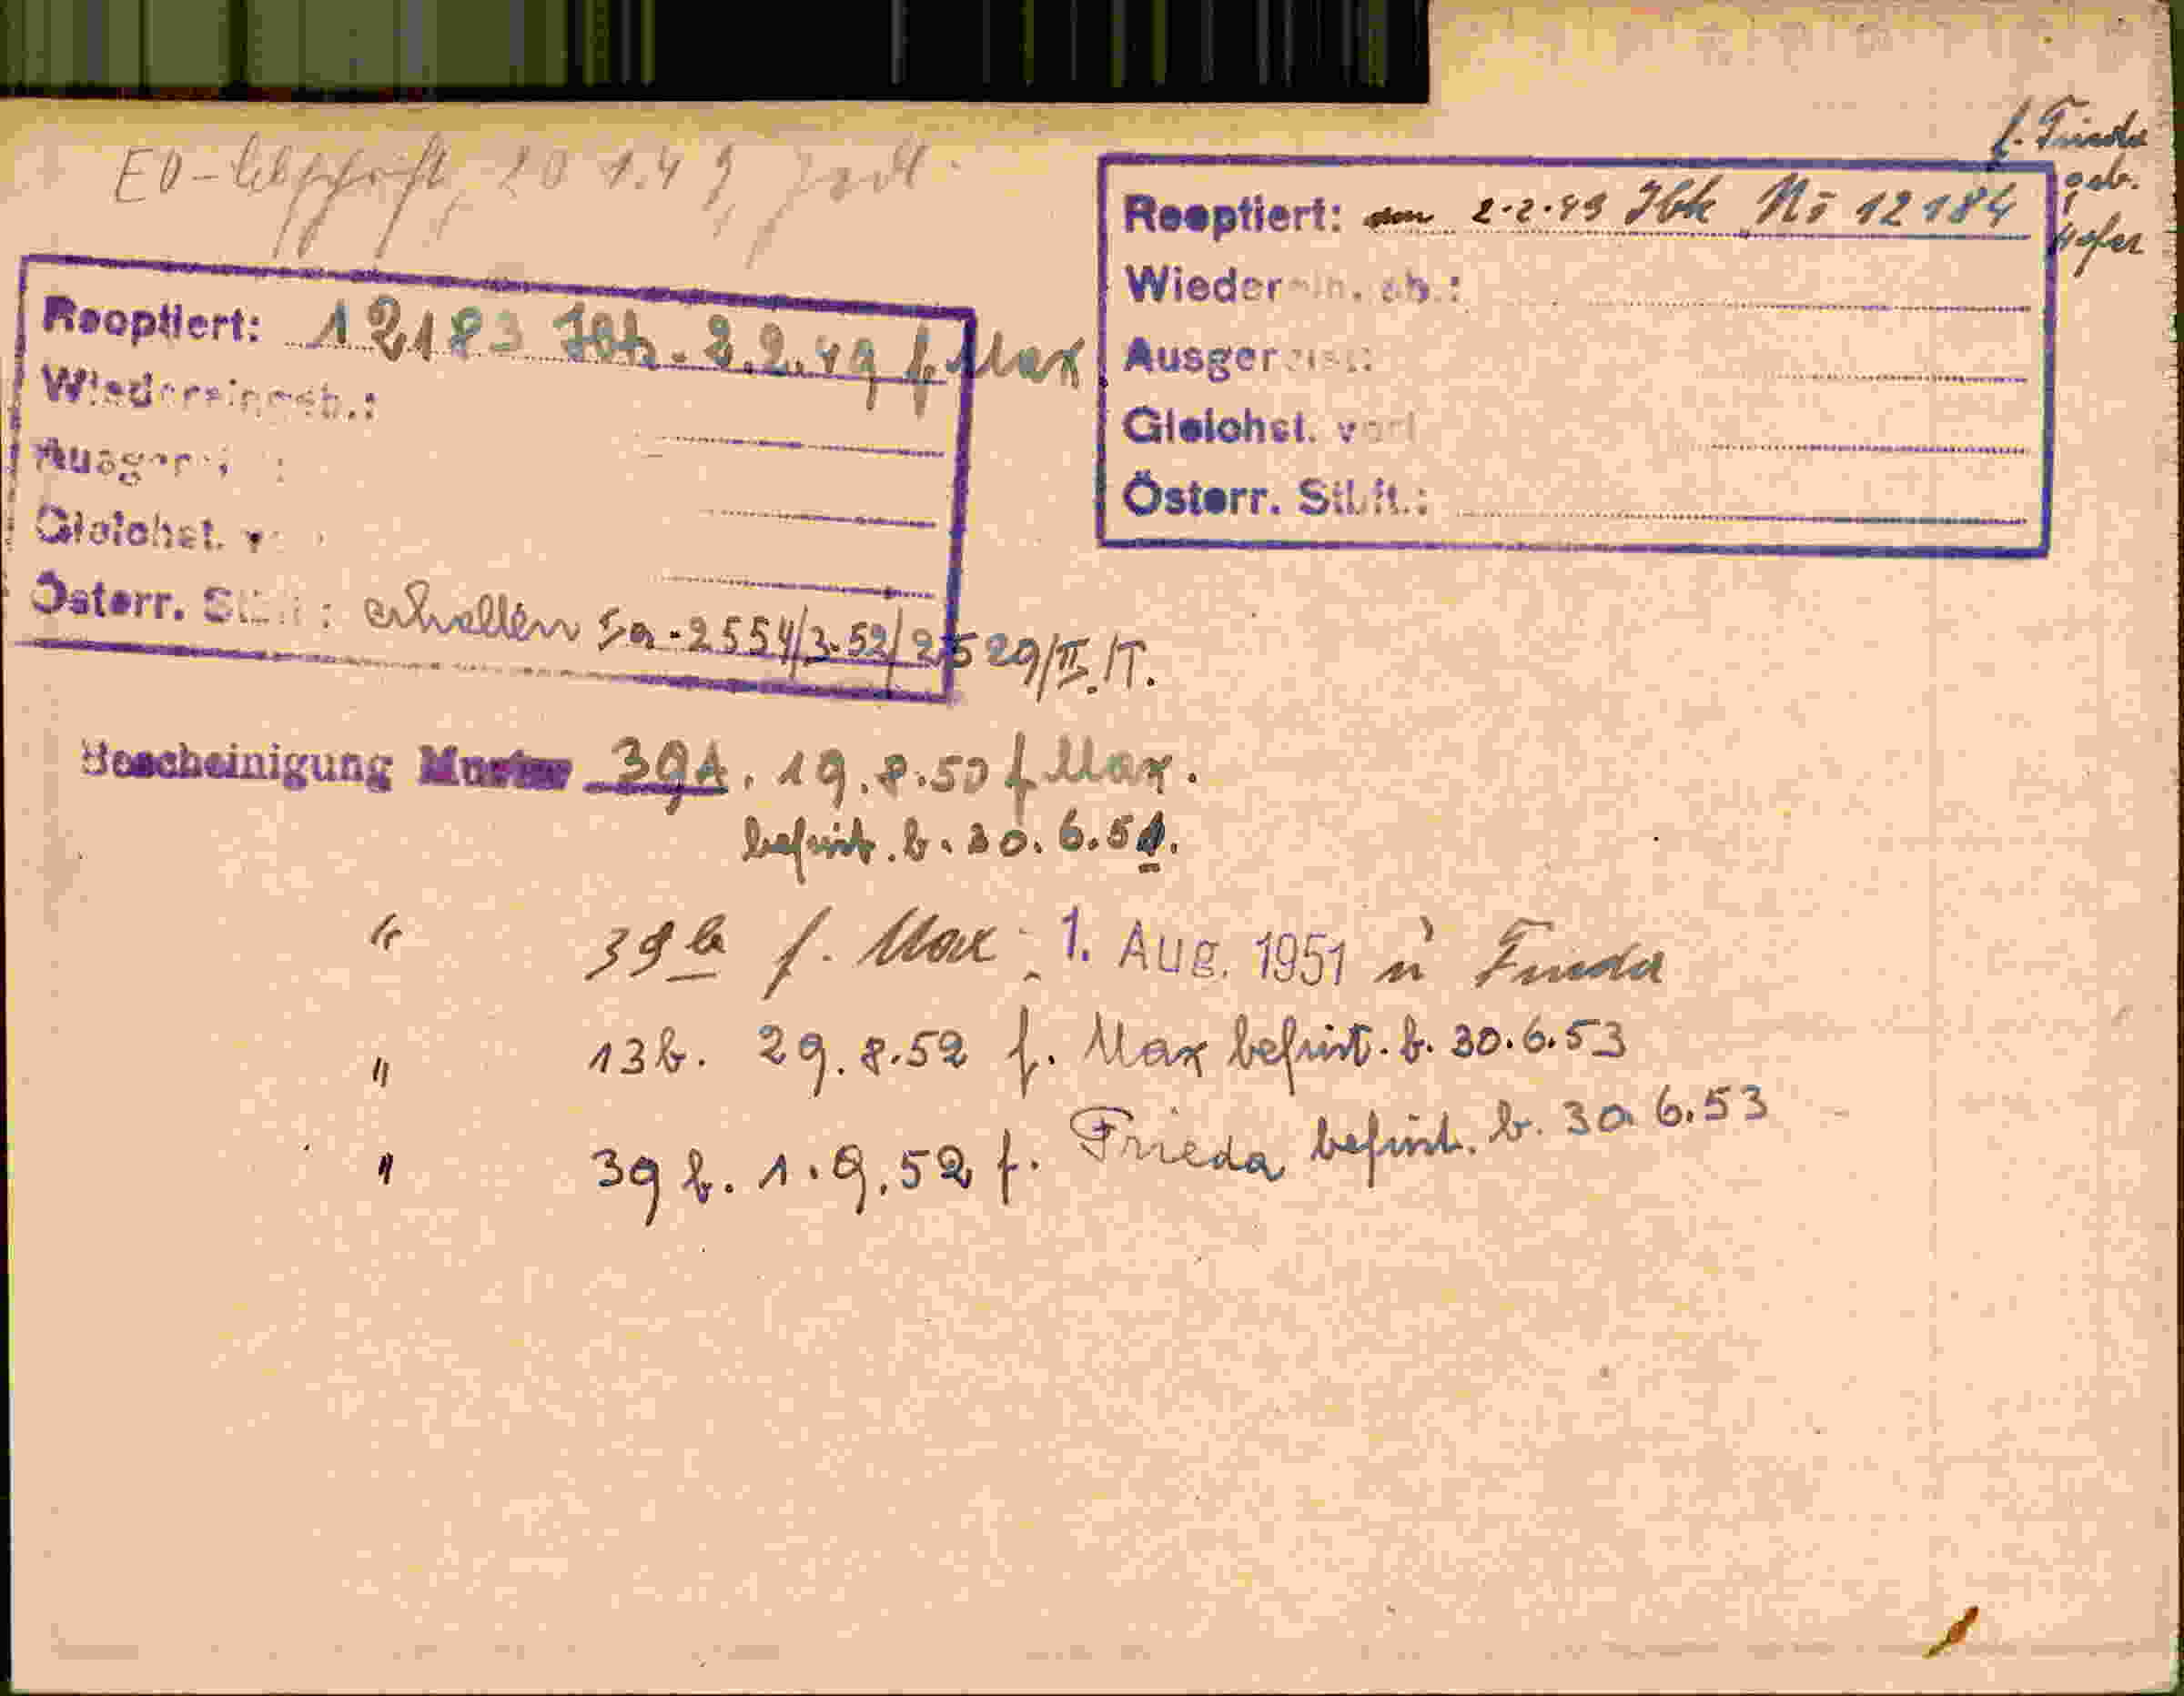 EO-Abschrift, 20 1.49
f. Frieda
geb.
Hofer
Reoptiert: 12183 Ibk. 2.2.49 f. Max
Wiedereingeb.:
Ausger
Gleichst. v
Österr. St : erhalten Ia-2554/3-52/2529/II./T.
Reoptiert: am 2.2.49 Ibk No 12184
Wieder ein. eb.:
Ausgereist:
Gleichst. vorl
Österr. Stbft.:
Bescheinigung Muster 39A. 19.8.50 f Max.
befrist. b. 30.6.51.
" 39b f. Max 1. Aug. 1951 u Frieda
" 13b. 29.8.52 f. Max befrist. b. 30.6.53
" 39b. 1.9.52 f. Frieda befrist. b. 30 6.53